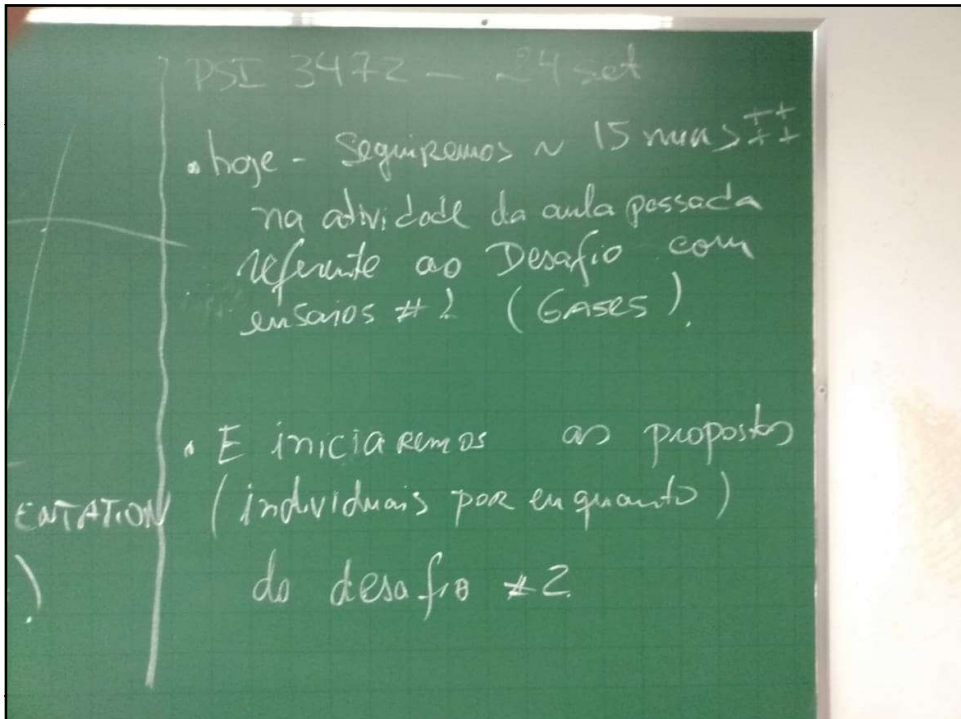 PSI 3472 - 24 set
• hoje - Seguiremos ~ 15 mins ++
++
na atividade da aula passada
referente ao Desafio com
ensaios # 1 (GASES).
• E iniciaremos as propostas
ENTATION
(individuais por enquanto)
)
do desafio #2